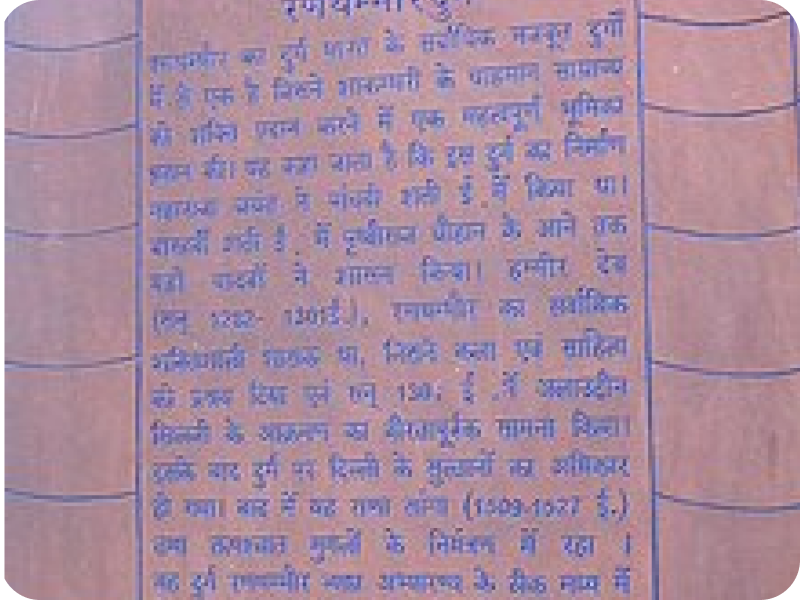 रणथम्भौर दुर्ग
रणथम्भौर का दुर्ग भारत के सर्वाधिक मजबूत दुर्गों
में से एक है जिसने शाकम्भरी के चाहमान साम्राज्य
को शक्ति प्रदान करने में एक महत्वपूर्ण भूमिका
प्रदान की। यह कहा जाता है कि इस दुर्ग का निर्माण
महाराजा जयंत ने पांचवी शती ई. में किया था।
बारहवीं शती ई. में पृथ्वीराज चौहान के आने तक
यहां यादवों ने शासन किया। हम्मीर देव
(सन् 1282- 1301ई.), रणथम्भौर का सर्वाधिक
शक्तिशाली शासक था, जिसने कला एवं साहित्य
को प्रश्रय दिया एवं सन् 1301 ई. में अलाउद्दीन
खिलजी के आक्रमण का वीरतापूर्वक सामना किया।
इसके बाद दुर्ग पर दिल्ली के सुल्तानों का अधिकार
हो गया। बाद में यह राणा सांगा (1509-1527 ई.)
तथा तत्पश्चात मुगलों के नियंत्रण में रहा ।
यह दुर्ग रणथम्भौर व्याघ्र अभयारण्य के ठीक मध्य में